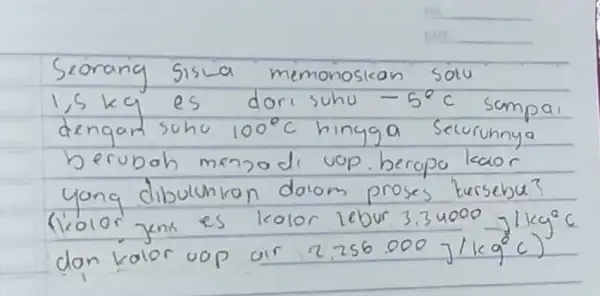 Seorang siswa memanaskan satu
1,5 kg es dari suhu -5°C sampai
dengan suhu 100°C hingga seluruhnya
berubah menjadi uap. berapa kalor
yang dibutuhkan dalam proses tersebut?
(kalor jenis es kalor lebur 334000 J/kg°C
dan kalor uap air 2.256.000 J/kg°C)